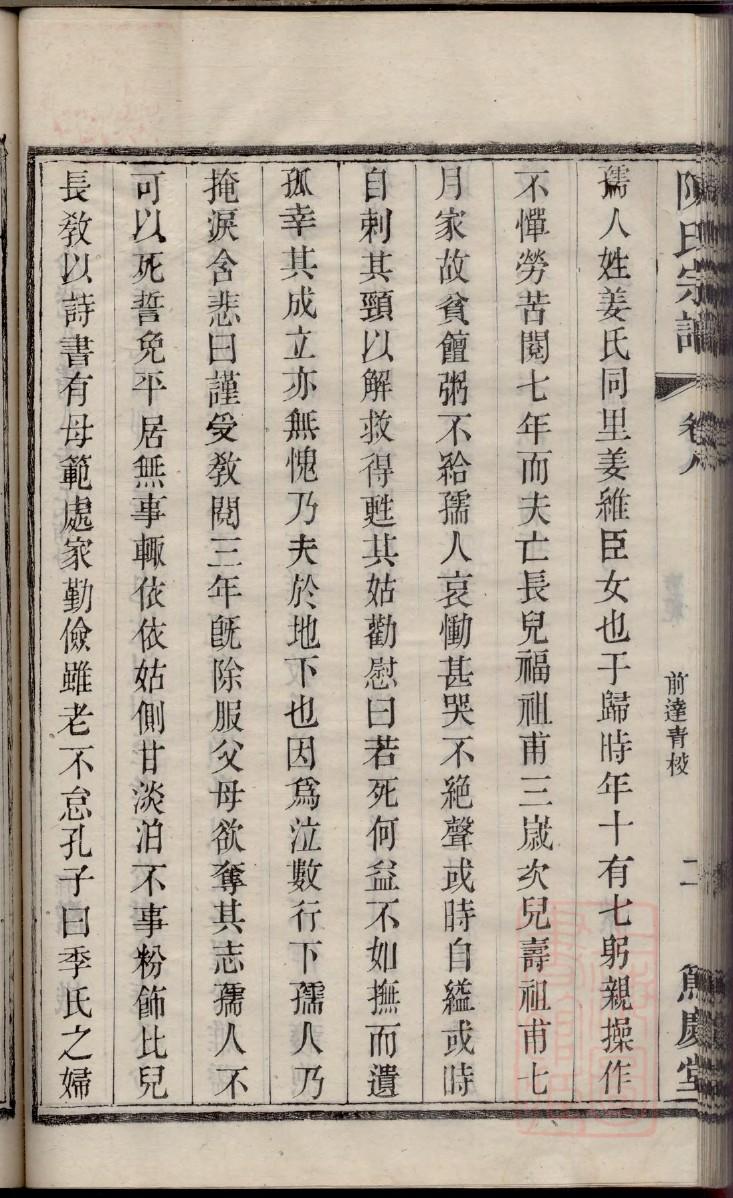 陳氏宗譜
卷八
前達青校
二
篤慶堂
孺人姓姜氏同里姜維臣女也于歸時年十有七躬親操作
不憚勞苦閱七年而夫亡長兒福祖甫三歲次兒壽祖甫七
月家故貧饘粥不給孺人哀慟甚哭不絕聲或時自縊或時
自刺其頸以解救得甦其姑勸慰曰若死何益不如撫而遺
孤幸其成立亦無愧乃夫於地下也因爲泣數行下孺人乃
掩淚含悲曰謹受教閱三年旣除服父母欲奪其志孺人不
可以死誓免平居無事輙依依姑側甘淡泊不事粉飾比兒
長教以詩書有母範處家勤儉雖老不怠孔子曰季氏之婦